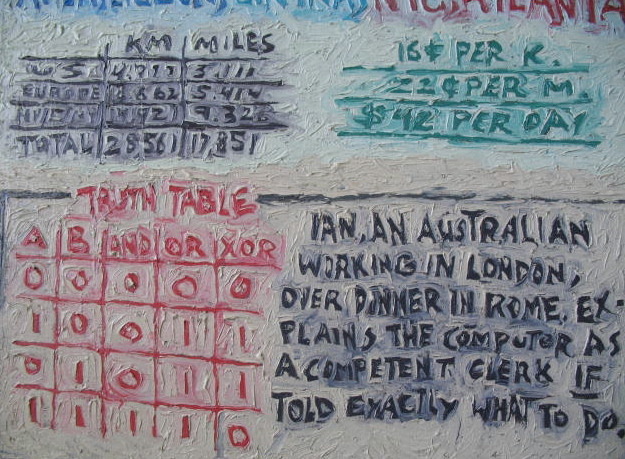 NYC, ATLANTA
KM MILES
16¢ PER K.
EUROPE 8,862 5,414
22¢ PER M.
$42 PER DAY
TOTAL 28,561 17,851
TRUTH TABLE
A B AND OR XOR
0 0 0 0 0
1 0 0 1 1
0 1 0 1 1
1 1 1 1 0
IAN, AN AUSTRALIAN
WORKING IN LONDON,
OVER DINNER IN ROME, EX-
PLAINS THE COMPUTOR AS
A COMPETENT CLERK IF
TOLD EXACTLY WHAT TO DO.